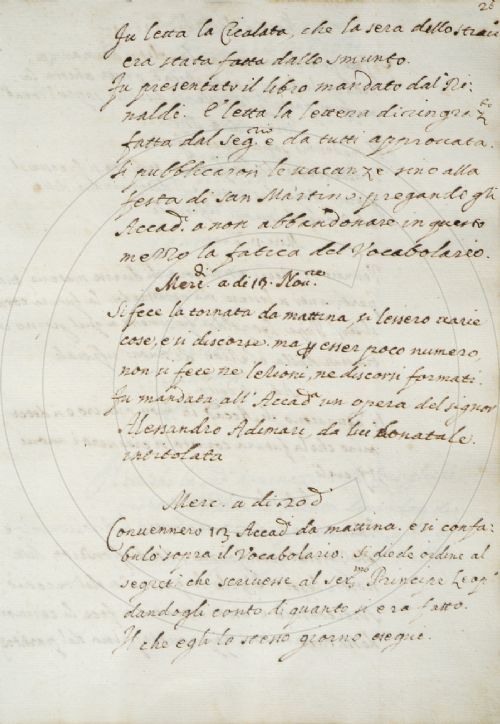 28
Fu letta la Cicalata, che la sera dello stravi:
era stata fatta dallo smunto.
Fu presentato il libro mandato dal Ri:
naldi. e letta la lettera di ringra:
fatta dal Seg.rio e da tutti approvata.
Si pubblicaron le vacanze sino alla
festa di San Martino. pregando gli
Accad.i a non abbandonare in questo
mezzo la fatica del Vocabolario.
Merc.dì a dì 13. Nov.re
Si fece la tornata da mattina, si lessero varie
cose, e si discorse. ma p esser poco numero,
non si fece ne lezioni, ne discorsi formati.
Fu mandata all'Accad.a un opera del signor
Alessandro Adimari, da lui donatale.
intitolata
Merc. a dì 20 d
Convennero 13 Accad.i da mattina. e si confa:
bulo sopra il Vocabolario. si diede ordine al
segret: che scrivesse al ser.mo Principe Leop.
dandogli conto di quanto si era fatto.
Il che egli lo stesso giorno eseguì.